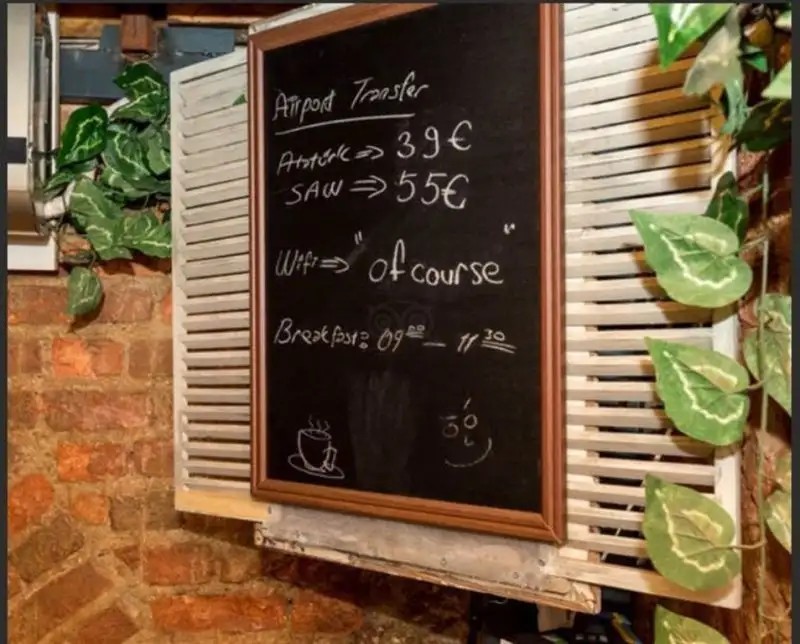 Airport Transfer
Atatürk => 39€
SAW => 55€
Wifi => "of course"
Breakfast: 09⁰⁰ – 11³⁰